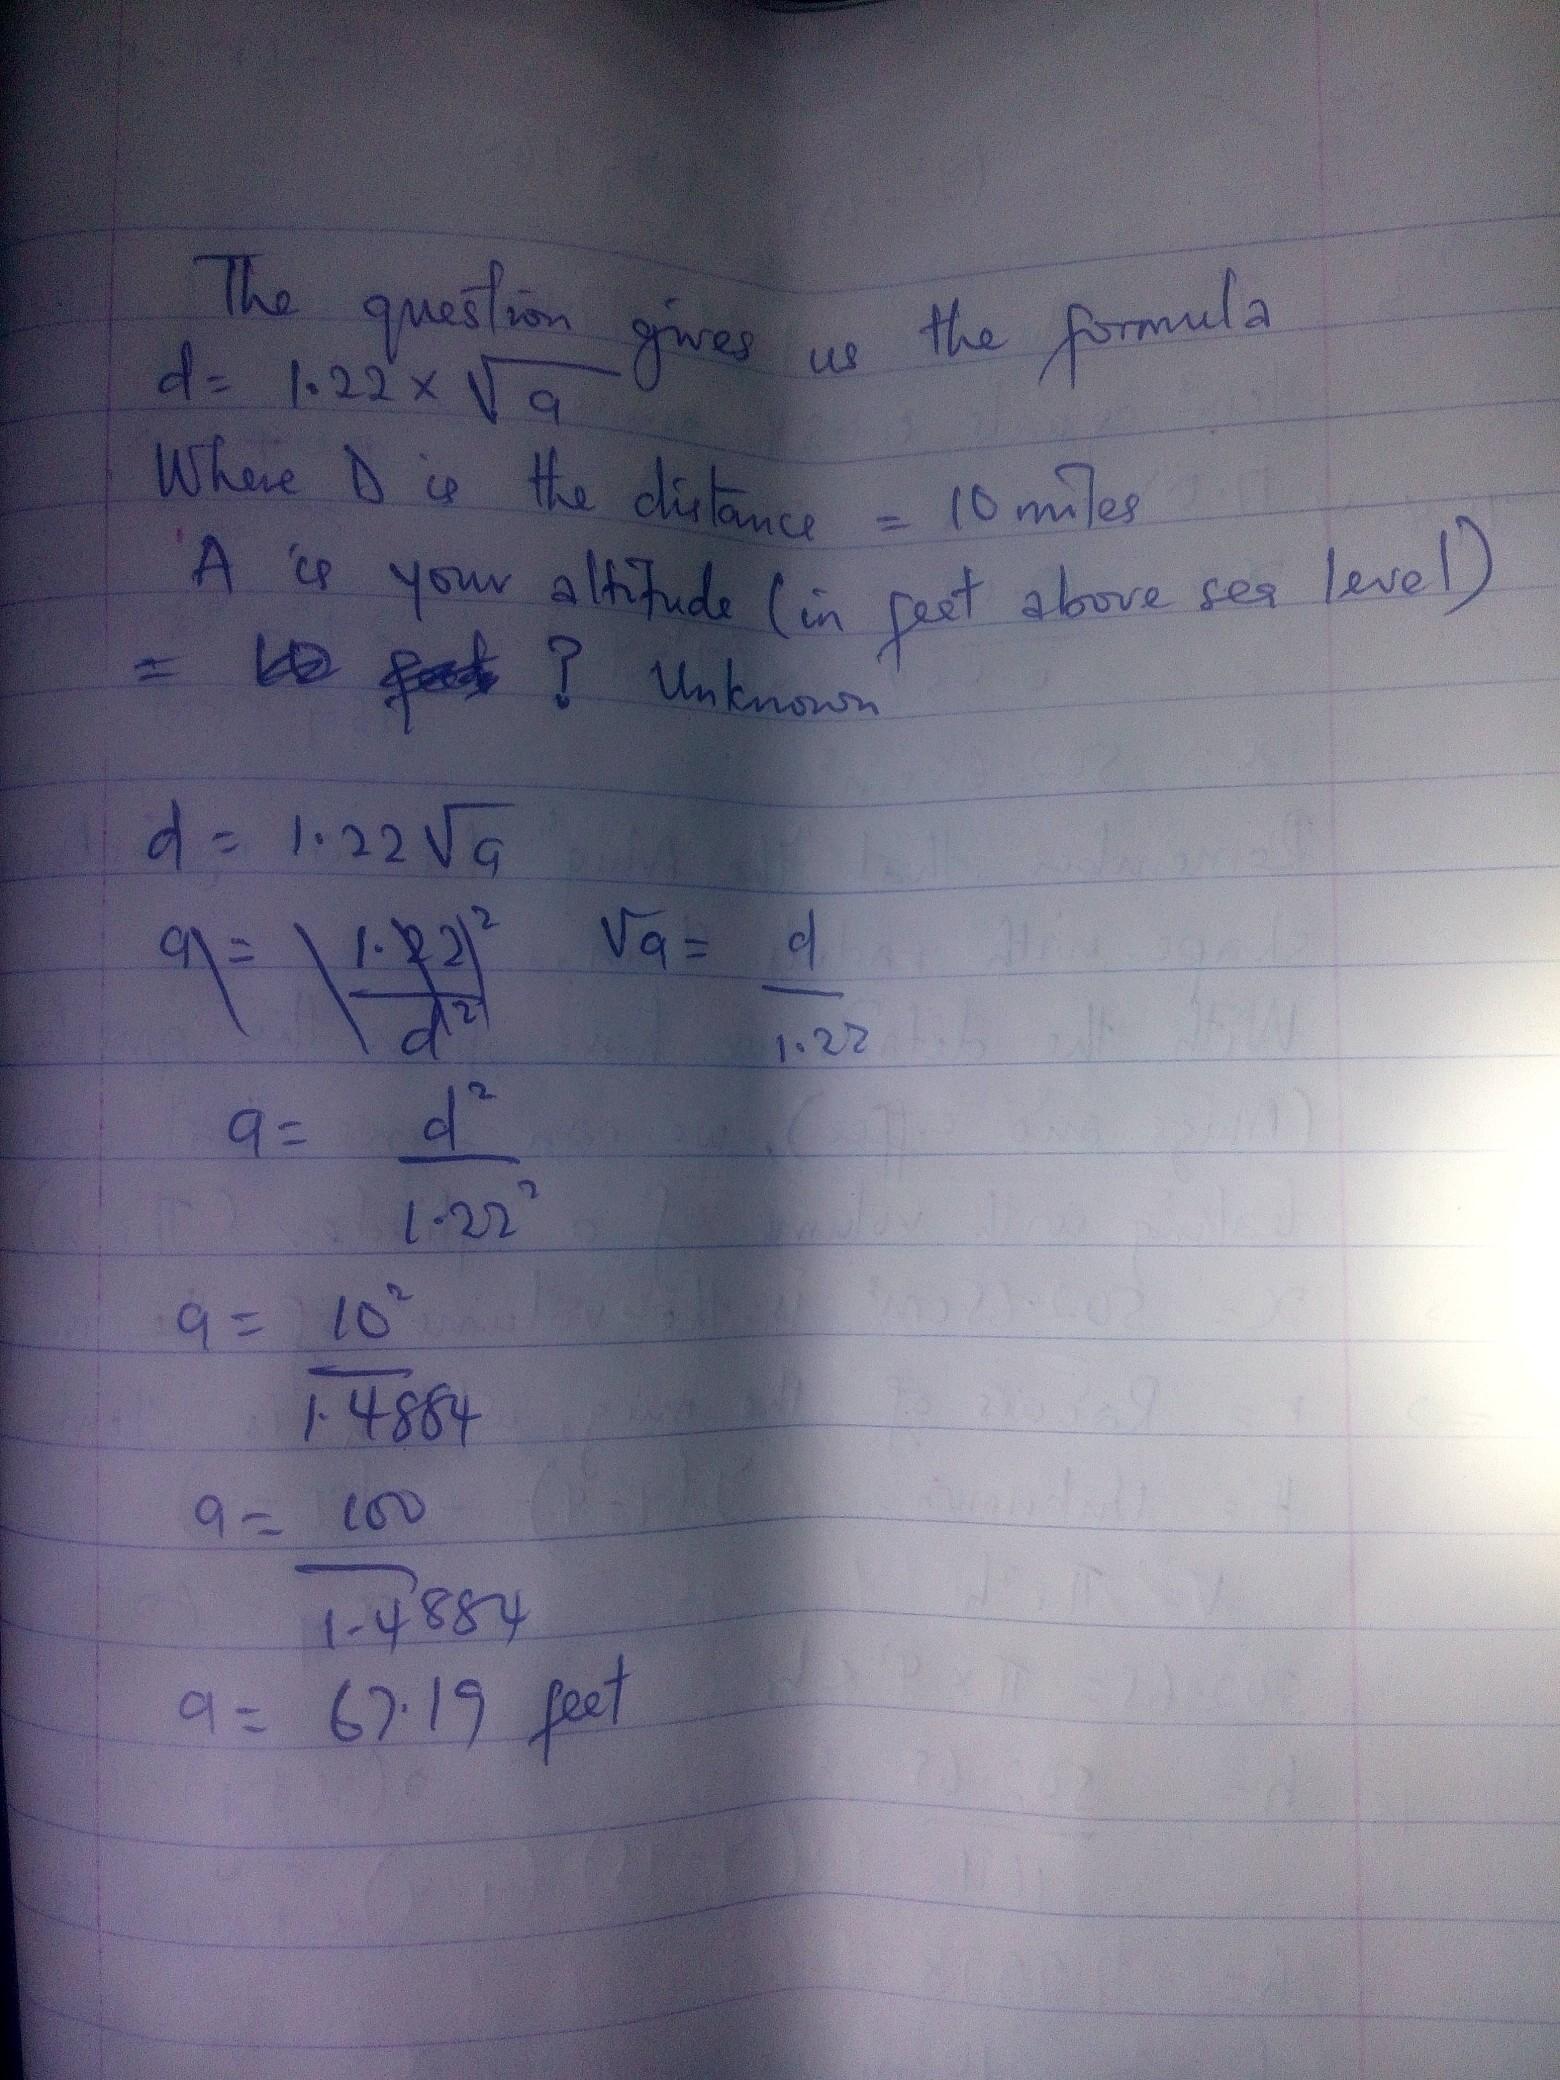 The question gives us the formula
d = 1.22 × √a
Where D is the distance = 10 miles
A is your altitude (in feet above sea level)
= ? Unknown
d = 1.22 √a
a = (1.22)² / d² √a = d / 1.22
a = d² / 1.22²
a = 10² / 1.4884
a = 100 / 1.4884
a = 67.19 feet